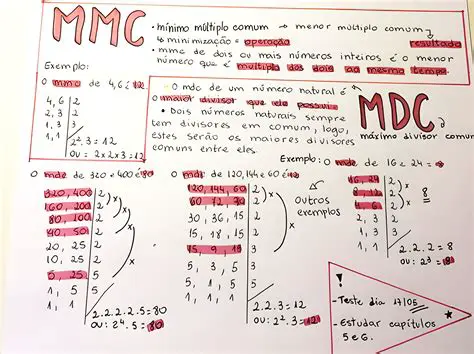 MMC
• mínimo múltiplo comum → menor múltiplo comum
↳ minimização = operação resultado
• mmc de dois ou mais números inteiros é o menor
número que é multiplo dos dois ao mesmo tempo.
Exemplo:
O mmc de 4,6 é 12
4, 6 | 2
2, 3 | 2
1, 3 | 3
1, 1 | 2².3 = 12
ou: 2×2×3 = 12
MDC
máximo divisor comum
• O mdc de um número natural é
o maior divisor que ele possui.
• Dois números naturais sempre
tem divisores em comum, logo,
estes serão os maiores divisores
comuns entre eles.
Exemplo: O mdc de 16 e 24 = 8
16, 24 | 2
8, 12 | 2
4, 6 | 2
2, 3 | 2
1, 3 | 3
1, 1
x
x
8
2.2.2 = 8
ou: 2³ = 8
O mdc de 320 e 400 é 80
320, 400 | 2
160, 200 | 2
80, 100 | 2
40, 50 | 2
20, 25 | 2
10, 25 | 2
5, 25 | 5
1, 5 | 5
1, 1
x
x
x
2.2.2.2.5 = 80
ou: 2⁴.5 = 80
O mdc de 120, 144 e 60 é 12
120, 144, 60 | 2
60, 72, 30 | 2
30, 36, 15 | 2
15, 18, 15 | 2
15, 9, 15 | 3
5, 3, 5 | 3
5, 1, 5 | 5
1, 1, 1
x
x
2.2.3 = 12
ou: 2².3 = 12
outros
exemplos
!
- Teste dia 17/05
- Estudar capítulos
5 e 6.